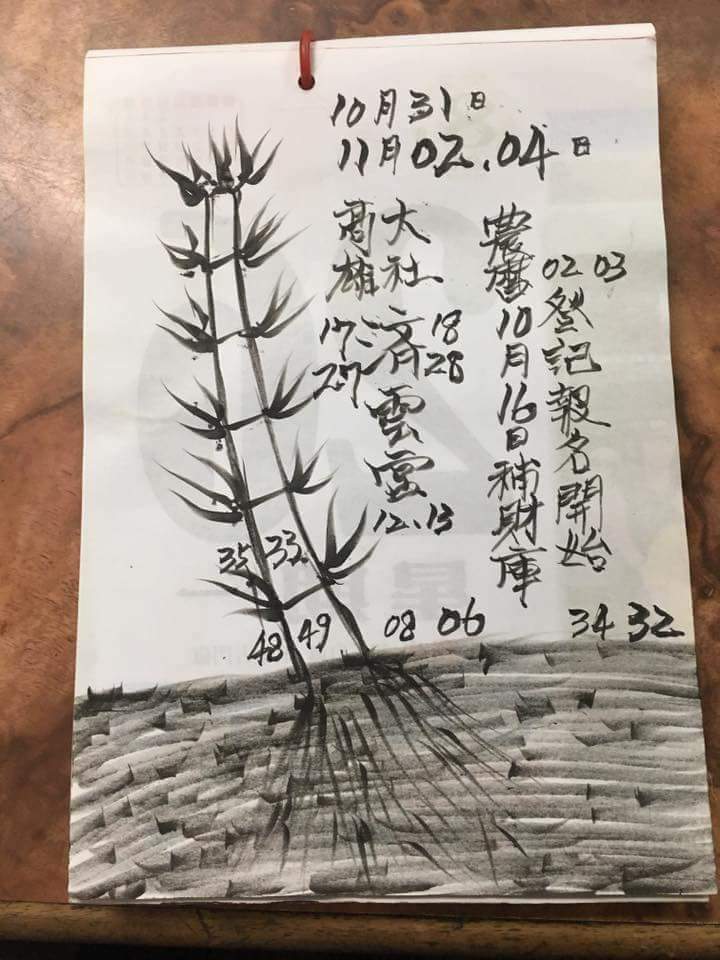 10月31日
11月02.04日
02 03
登記報名開始
34 32
農曆10月16日補財庫
大社
高雄
17 18
27 28
濟雲宮
12.13
35 33
48 49
08 06